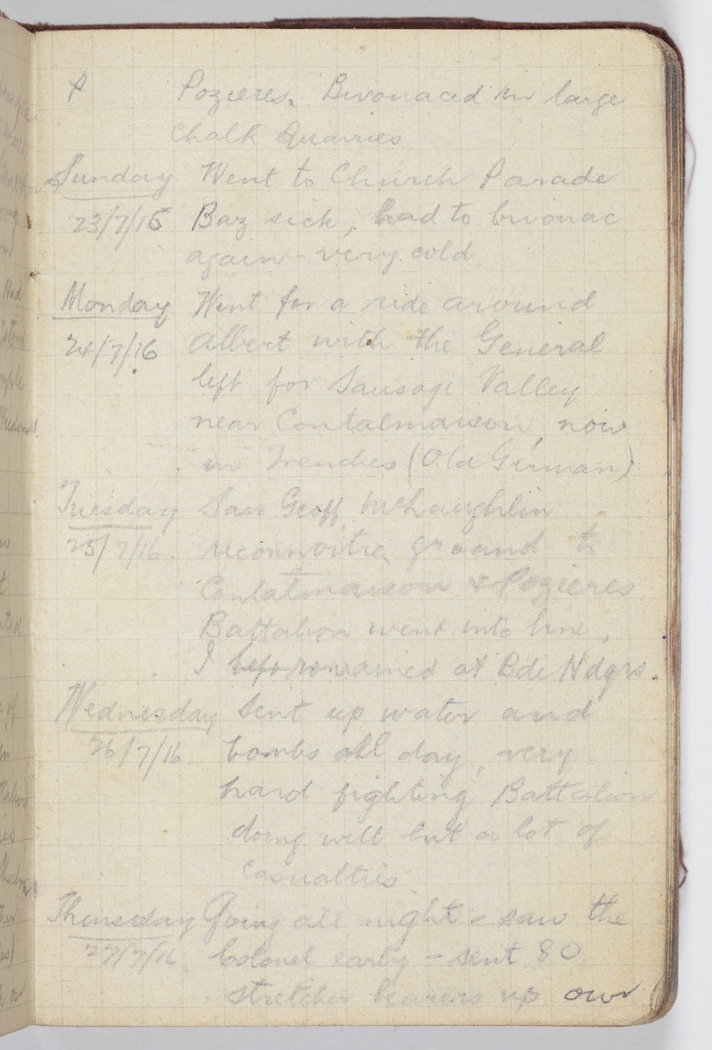 Pozieres. Bivouaced in large
chalk quarries
Sunday Went to Church Parade
23/7/16 Baz sick, had to bivouac
again - very cold
Monday Went for a ride around
24/7/16 Albert with the General
left for Sausage Valley
near Contalmaison, now
in Trenches (Old German)
Tuesday Saw Geoff McLaughlin
25/7/16 reconnoitre ground to
Contalmaison & Pozieres
Battalion went into line,
I remained at Bde Hdqrs.
Wednesday Sent up water and
26/7/16 bombs all day, very
hard fighting Battalion
doing well but a lot of
casualties.
Thursday Going all night - saw the
27/7/16 Colonel early - sent 80
stretcher bearers up our